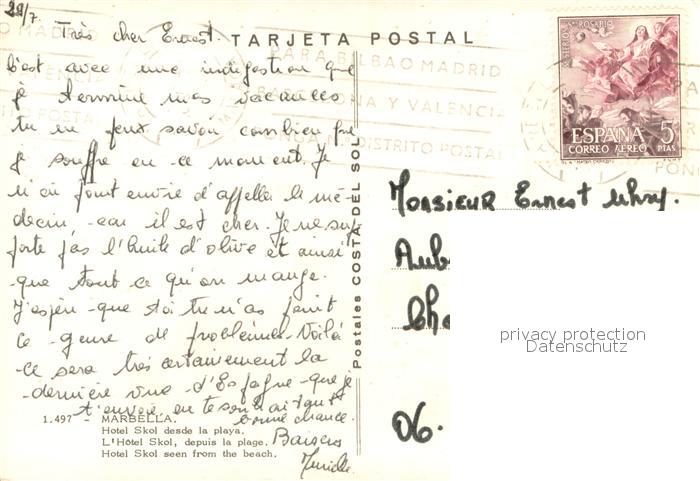 29/7
Très cher Ernest.
TARJETA POSTAL
c'est avec une indigestion que
je termine mes vacances
tu ne peux savoir combien que
je souffre en ce moment. Je
n'ai point envie d'appeller le mé-
decin, car il est cher. Je ne sup
porte pas l'huile d'olive et ainsi
que tout ce qu'on mange.
J'espère que toi tu n'as point
ce genre de problèmes. Voilà
ce sera très certainement la
dernière vue d'Espagne que je
t'envoie en te souhaitant
bonne chance.
Baisers
1.497 - MARBELLA.
Hotel Skol desde la playa.
L'Hôtel Skol, depuis la plage.
Hotel Skol seen from the beach.
Postales COSTA DEL SOL
MISTERIOS Sº ROSARIO
ESPAÑA 5
CORREO AEREO PTAS
PARA BILBAO MADRID
BARCELONA Y VALENCIA
PONGA Nº DISTRITO POSTAL
Monsieur Ernest
06.
privacy protection
Datenschutz